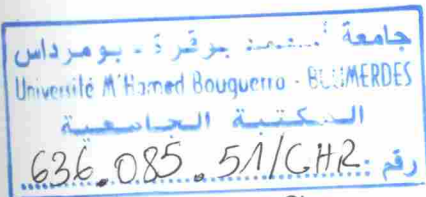 جامعة أمحمد بوقرة - بومرداس
Université M'Hamed Bouguerra - BOUMERDES
المكتبة الجامعية
رقم : 636.085.51/GHR